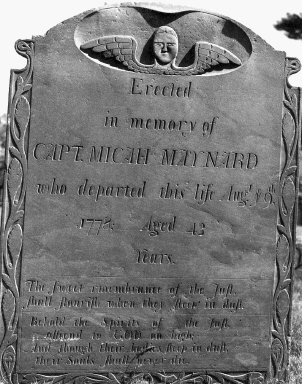 Erected
in memory of
CAPT. MICAH MAYNARD
who departed this life Augst 9th
177 Aged 43
Years.
The sweet remembrance of the Just,
shall flourish when they sleep in dust.
Behold the Spirits of the Just
ascend to GOD on high;
but though their bodies sleep in dust,
Their Souls shall never die.